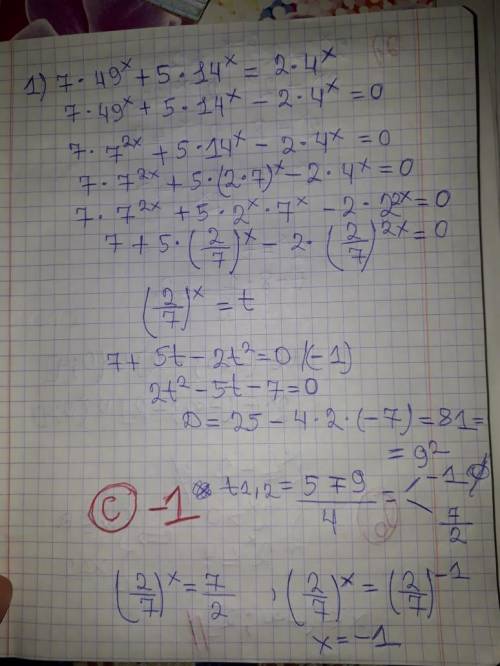 1) 7·49ˣ + 5·14ˣ = 2·4ˣ
7·49ˣ + 5·14ˣ − 2·4ˣ = 0
7·7²ˣ + 5·14ˣ − 2·4ˣ = 0
7·7²ˣ + 5·(2·7)ˣ − 2·4ˣ = 0
7·7²ˣ + 5·2ˣ·7ˣ − 2·2²ˣ = 0
7 + 5·(2/7)ˣ − 2·(2/7)²ˣ = 0
(2/7)ˣ = t
7 + 5t − 2t² = 0 /(−1)
2t² − 5t − 7 = 0
D = 25 − 4·2·(−7) = 81 =
= 9²
C −1 t1,2 = 5∓9/4 = −1 ∅
7/2
(2/7)ˣ = 7/2, (2/7)ˣ = (2/7)⁻¹
x = −1